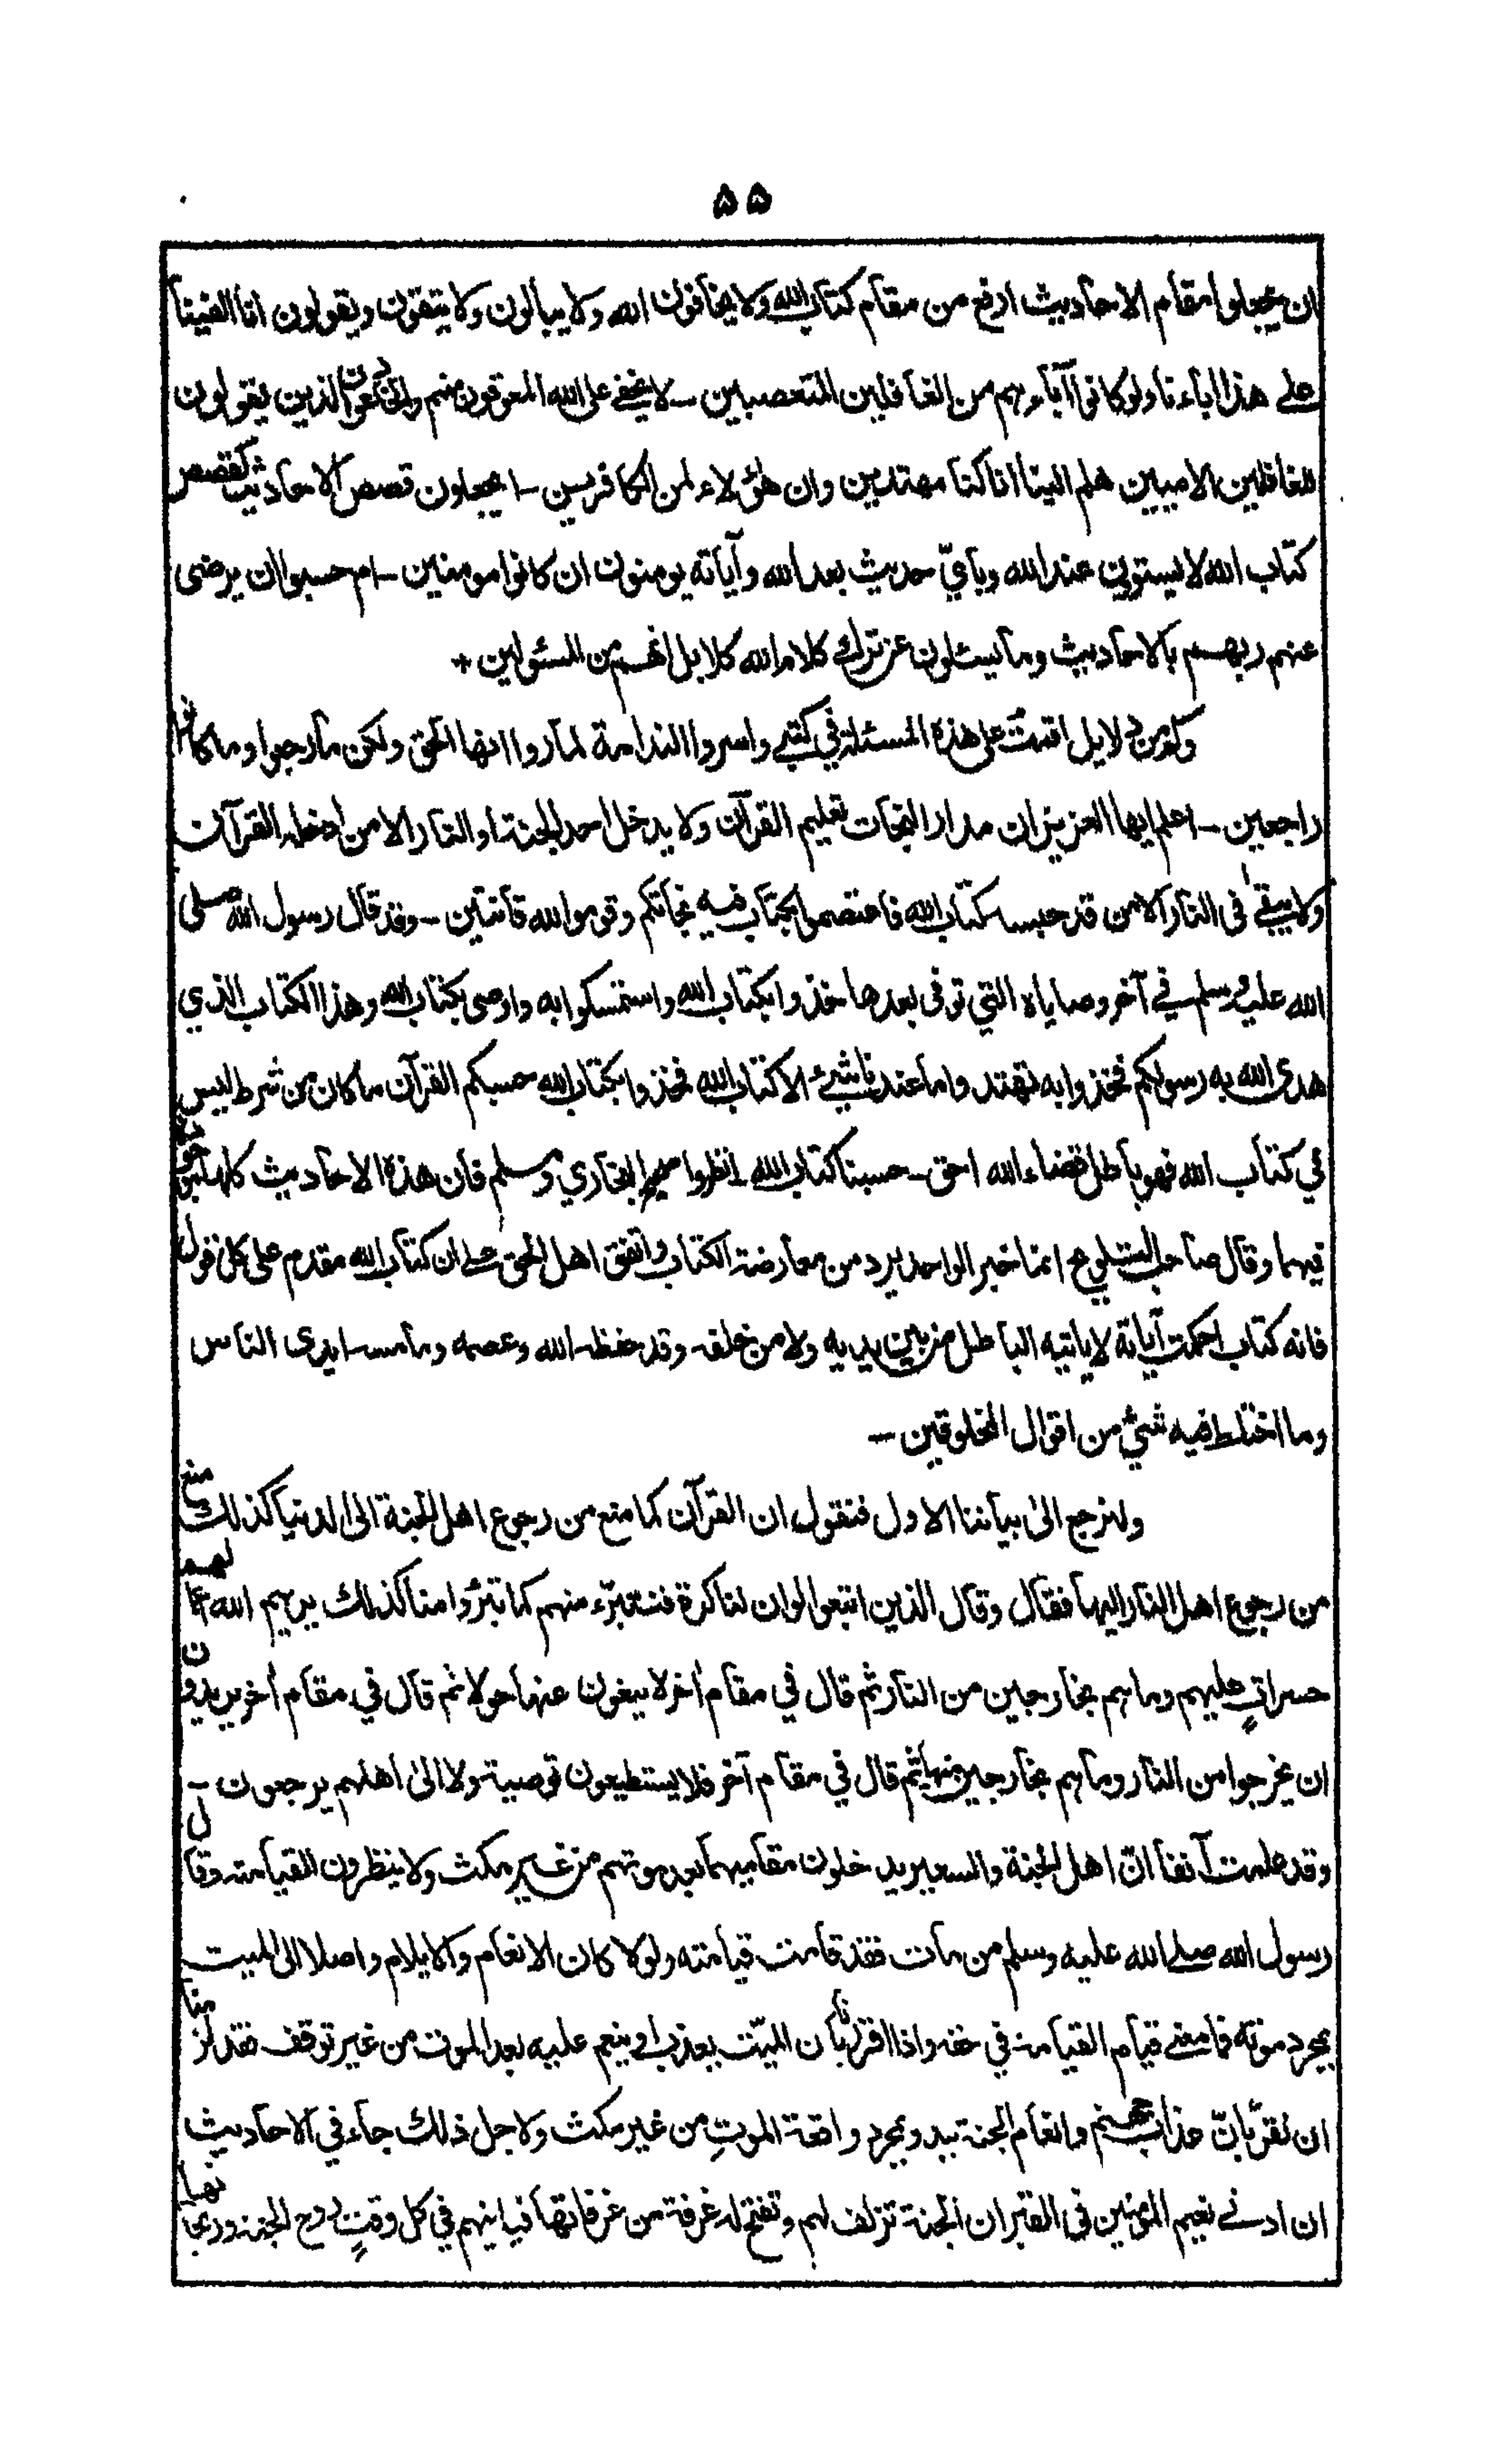 ۵۵
ان يجعلوا مقام الاحاديث ارفع من مقام كتاب الله ولا يخافون الله ولا يبالون ولا يتقون ويقولون انا الفينا
على هذا اباءنا ولو كانوا آباءهم من الغافلين المتعصبين - لا يخفى على الله المعوقون منهم والخادعون الذين يقولون
للغافلين الاميين هلم الينا انا كنا مهتدين وان هؤلاء لمن الكافرين - ايجعلون قصص الاحاديث كقصص
كتاب الله لا يستوون عند الله وبايّ حديث بعد الله وآياته يومنون ان كانوا مومنين - ام حسبوا ان يرضى
عنهم ربهم بالاحاديث وما يسئلون عن ترك كلام الله كلا بل انهم من المسئولين +
وكم من دلايل اقمت على هذه المسئلة في كتبي واسروا الندامة لما روا انها الحق ولكن ما رجعوا وما كانوا
راجعين - اعلم ايها العزيز ان مدار النجات تعليم القرآن ولا يدخل احد الجنة او النار الا من ادخله القرآن
ولا يبقى في النار الا من قد حبسه كتاب الله فاعتصموا بكتاب فيه نجاتكم وقوموا لله قانتين - وقد قال رسول الله صلى
الله عليه وسلم في آخر وصاياه التي توفى بعدها خذوا بكتاب الله واستمسكوا به واوصى بكتاب الله وهذا الكتاب الذي
هدى الله به رسولكم فخذوا به تهتدوا ما عندنا شيء الا كتاب الله فخذوا بكتاب الله حسبكم القرآن ما كان من شرط ليس
في كتاب الله فهو باطل قضاء الله احق - حسبنا كتاب الله - انظروا صحيح البخاري ومسلم فان هذه الاحاديث كلها موجودة
فيهما وقال صاحب التلويح انما خبر الواحد يرد من معارضة الكتاب واتفق اهل الحق على ان كتاب الله مقدم على كل قول
فانه كتاب احكمت آياته لا ياتيه الباطل من بين يديه ولا من خلفه وقد حفظه الله وعصمه وما مسه ايدى الناس
وما اختلط فيه شيء من اقوال المخلوقين -
ولنرجع الى بياننا الاول فنقول ان القرآن كما منع من رجوع اهل الجنة الى الدنيا كذلك منع
من رجوع اهل النار اليها فقال وقال الذين اتبعوا لو ان لنا كرة فنتبرّء منهم كما تبرّءوا منا كذلك يريهم الله اعمالهم
حسراتٍ عليهم وما هم بخارجين من النار ثم قال في مقام اٰخر لا يبغون عنها حولا ثم قال في مقام اٰخر يريدون
ان يخرجوا من النار وما هم بخارجين منها ثم قال في مقام آخر فلا يستطيعون توصية ولا الىٰ اهلهم يرجعون -
وقد علمت آنفا انّ اهل الجنة والسعير يدخلون مقاميهما بعد موتهم من غير مكث ولا ينظرون القيامة وقال
رسول الله صلى الله عليه وسلم من مات فقد قامت قيامته ولولا كان الانعام والايلام واصلا الى الميت
بمجرد موته فما معنى قيام القيامة في حقه واذا اقررنا بان الميّت يعذب او ينعم عليه بعد الموت من غير توقف فقد لزمنا
ان نقرّ بانّ عذاب جهنم وانعام الجنة يبدو بمجرد واقعة الموتِ من غير مكث ولاجل ذلك جاء في الاحاديث
ان ادنى نعيم المومنين في القبر ان الجنة تزلف لهم وتفتح له غرفة من غرفاتها فياتيهم في كل وقتٍ روح الجنة وريحانها